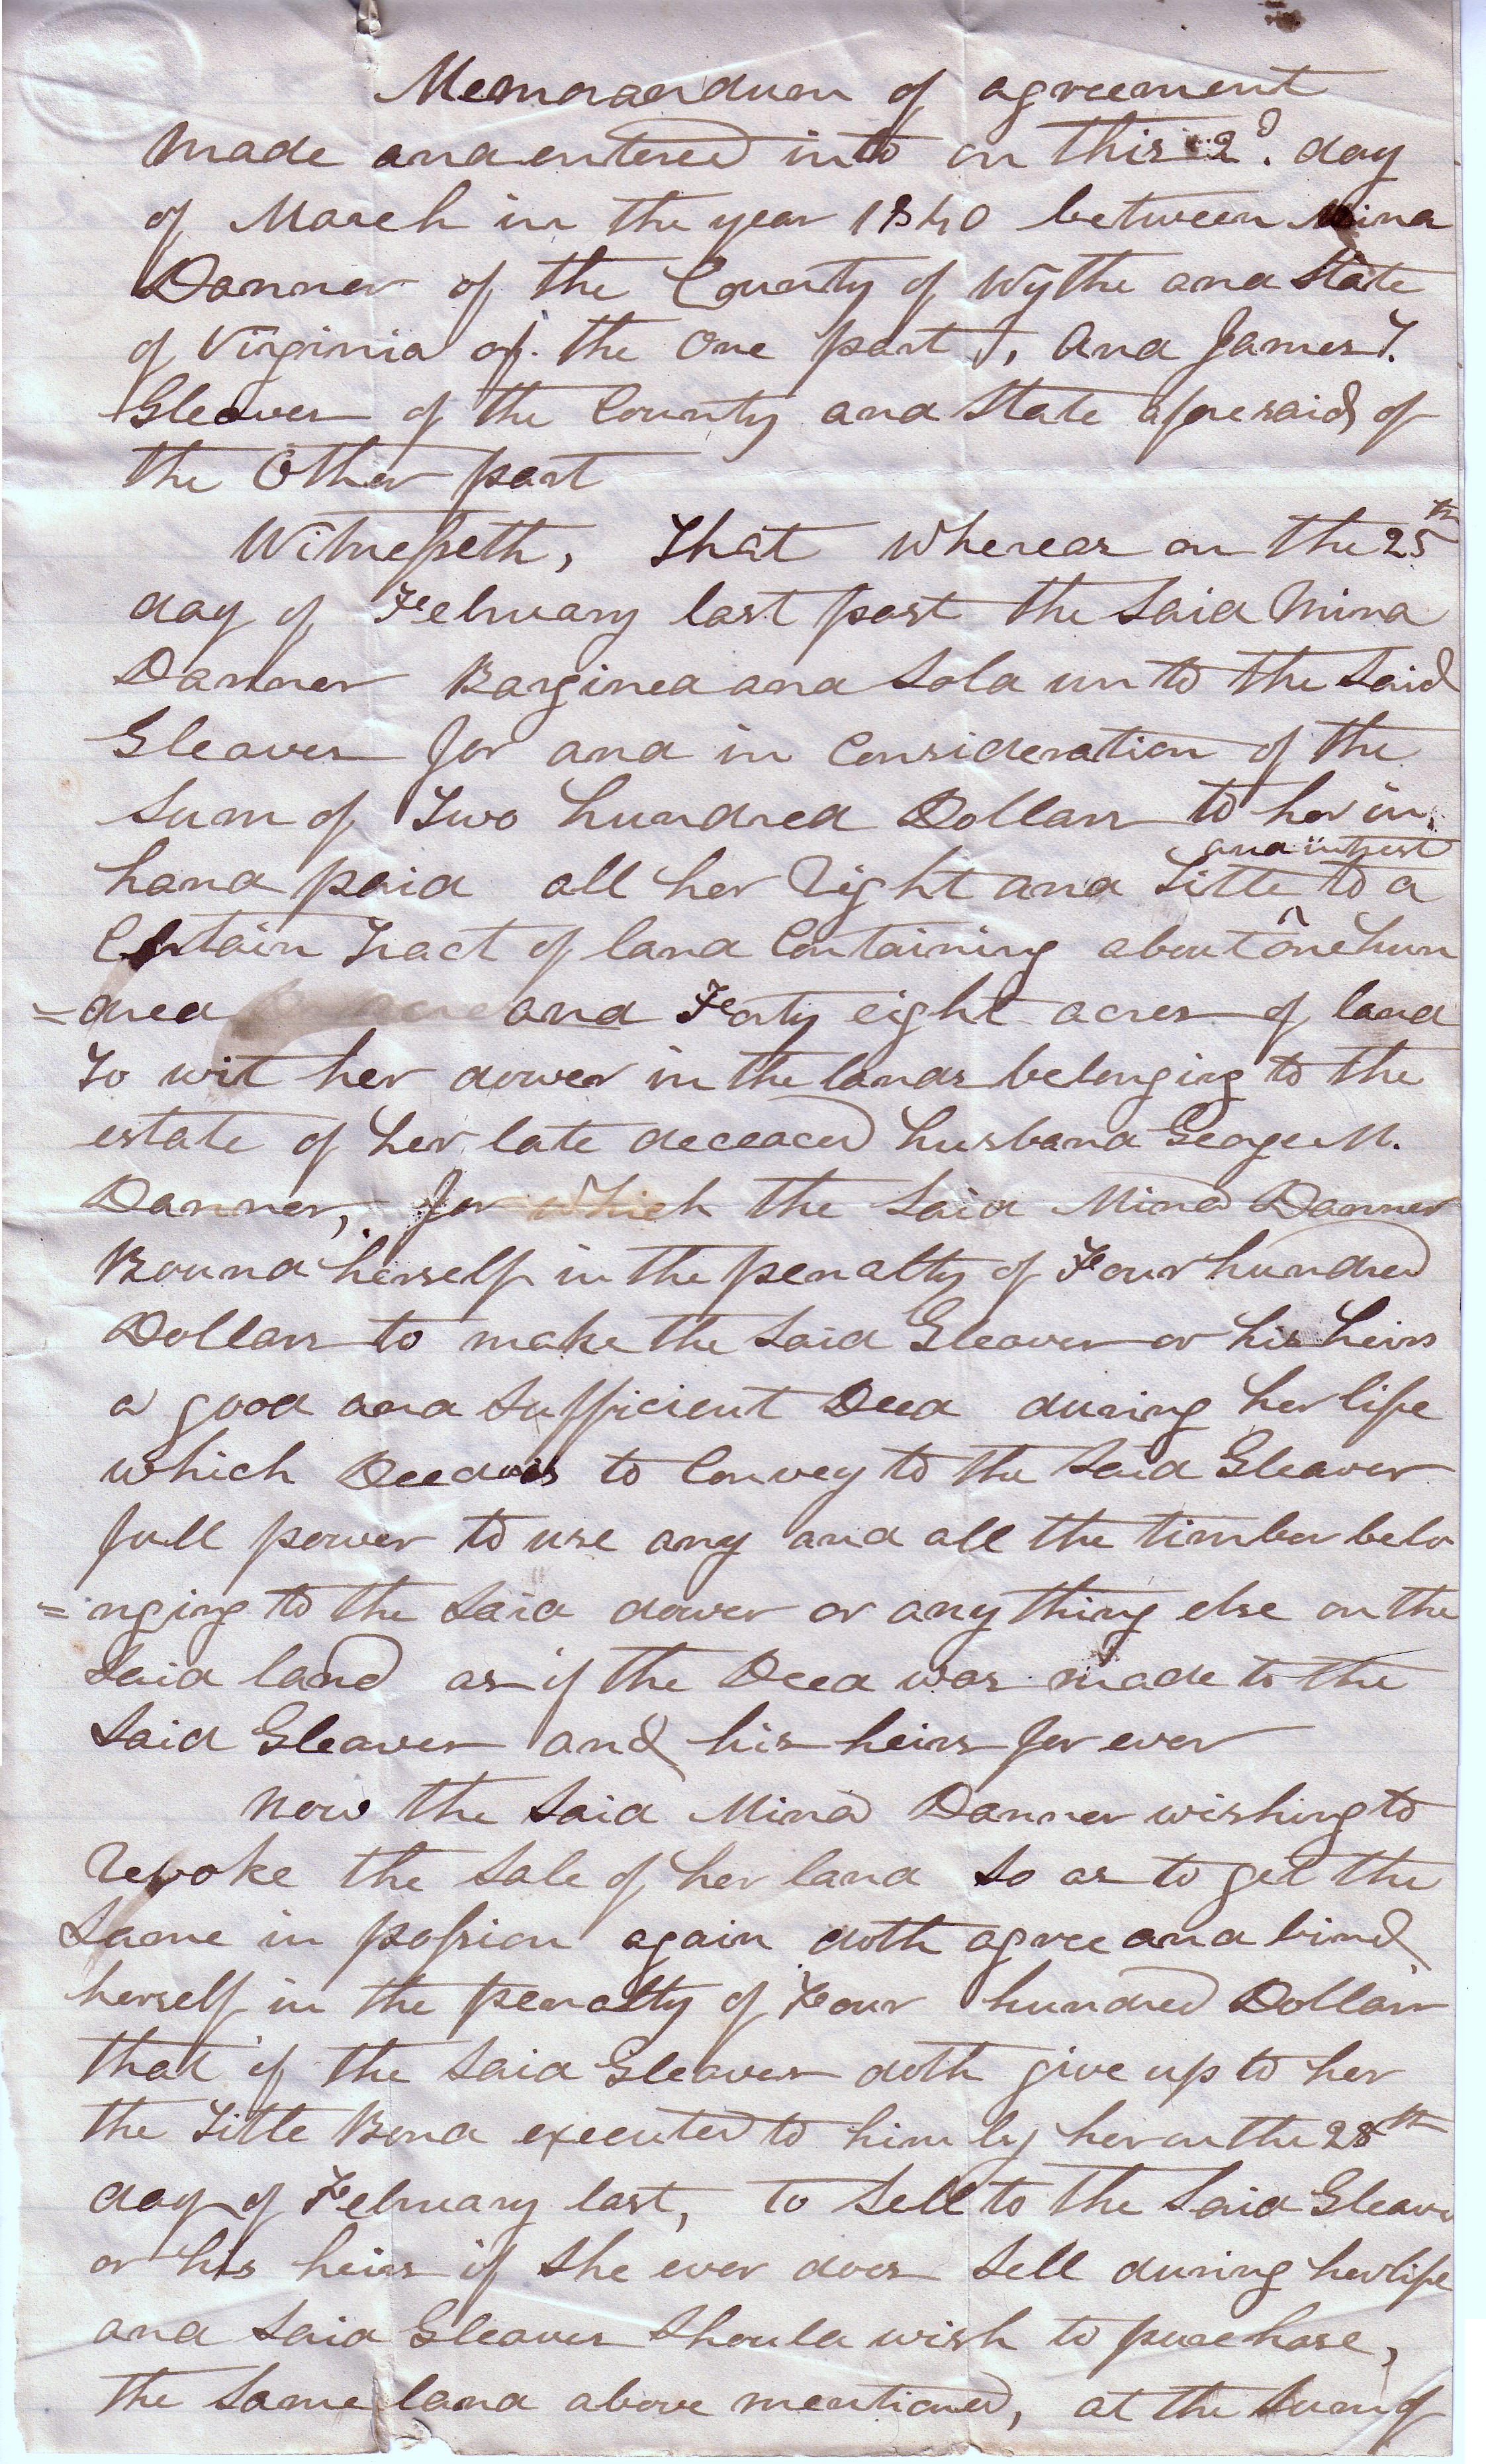 Memorandum of agreement
made and entered into on this 2d. day
of March in the year 1840 between Mina
Danner of the County of Wythe and State
of Virginia of the One part, And James T.
Gleaves of the County and State aforesaid of
the Other part
Witnesseth, That whereas on the 25th
day of February last past the Said Mina
Danner Barginea and Sold unto the Said
Gleaves for and in Consideration of the
Sum of Two hundred Dollars to her in
hand paid all her Right and Title and intrest to a
Certain Tract of land Containing about one hun
=dred and Forty eight acres of land
To wit her dower in the lands belonging to the
estate of her late deceaced husband George M.
Danner, for which the Said Mina Danner
Bound herself in the penalty of Four hundred
Dollars to make the Said Gleaves or his heirs
a good and Sufficient Deed during her life
which Deed was to Convey to the Said Gleaves
full power to use any and all the timber belo
=nging to the Said dower or any thing else on the
Said land as if the Deed was made to the
Said Gleaves and his heirs for ever
Now the Said Mina Danner wishing to
Revoke the Sale of her land So as to get the
Same in possion again doth agree and bind
herself in the penalty of Four hundred Dollars
that if the Said Gleaves doth give up to her
the Title Bond executed to him by her on the 28th
day of February last, to Sell to the Said Gleaves
or his heirs if She ever does Sell during her life
and Said Gleaves Should wish to purchase,
the Same land above mentioned, at the Sum of